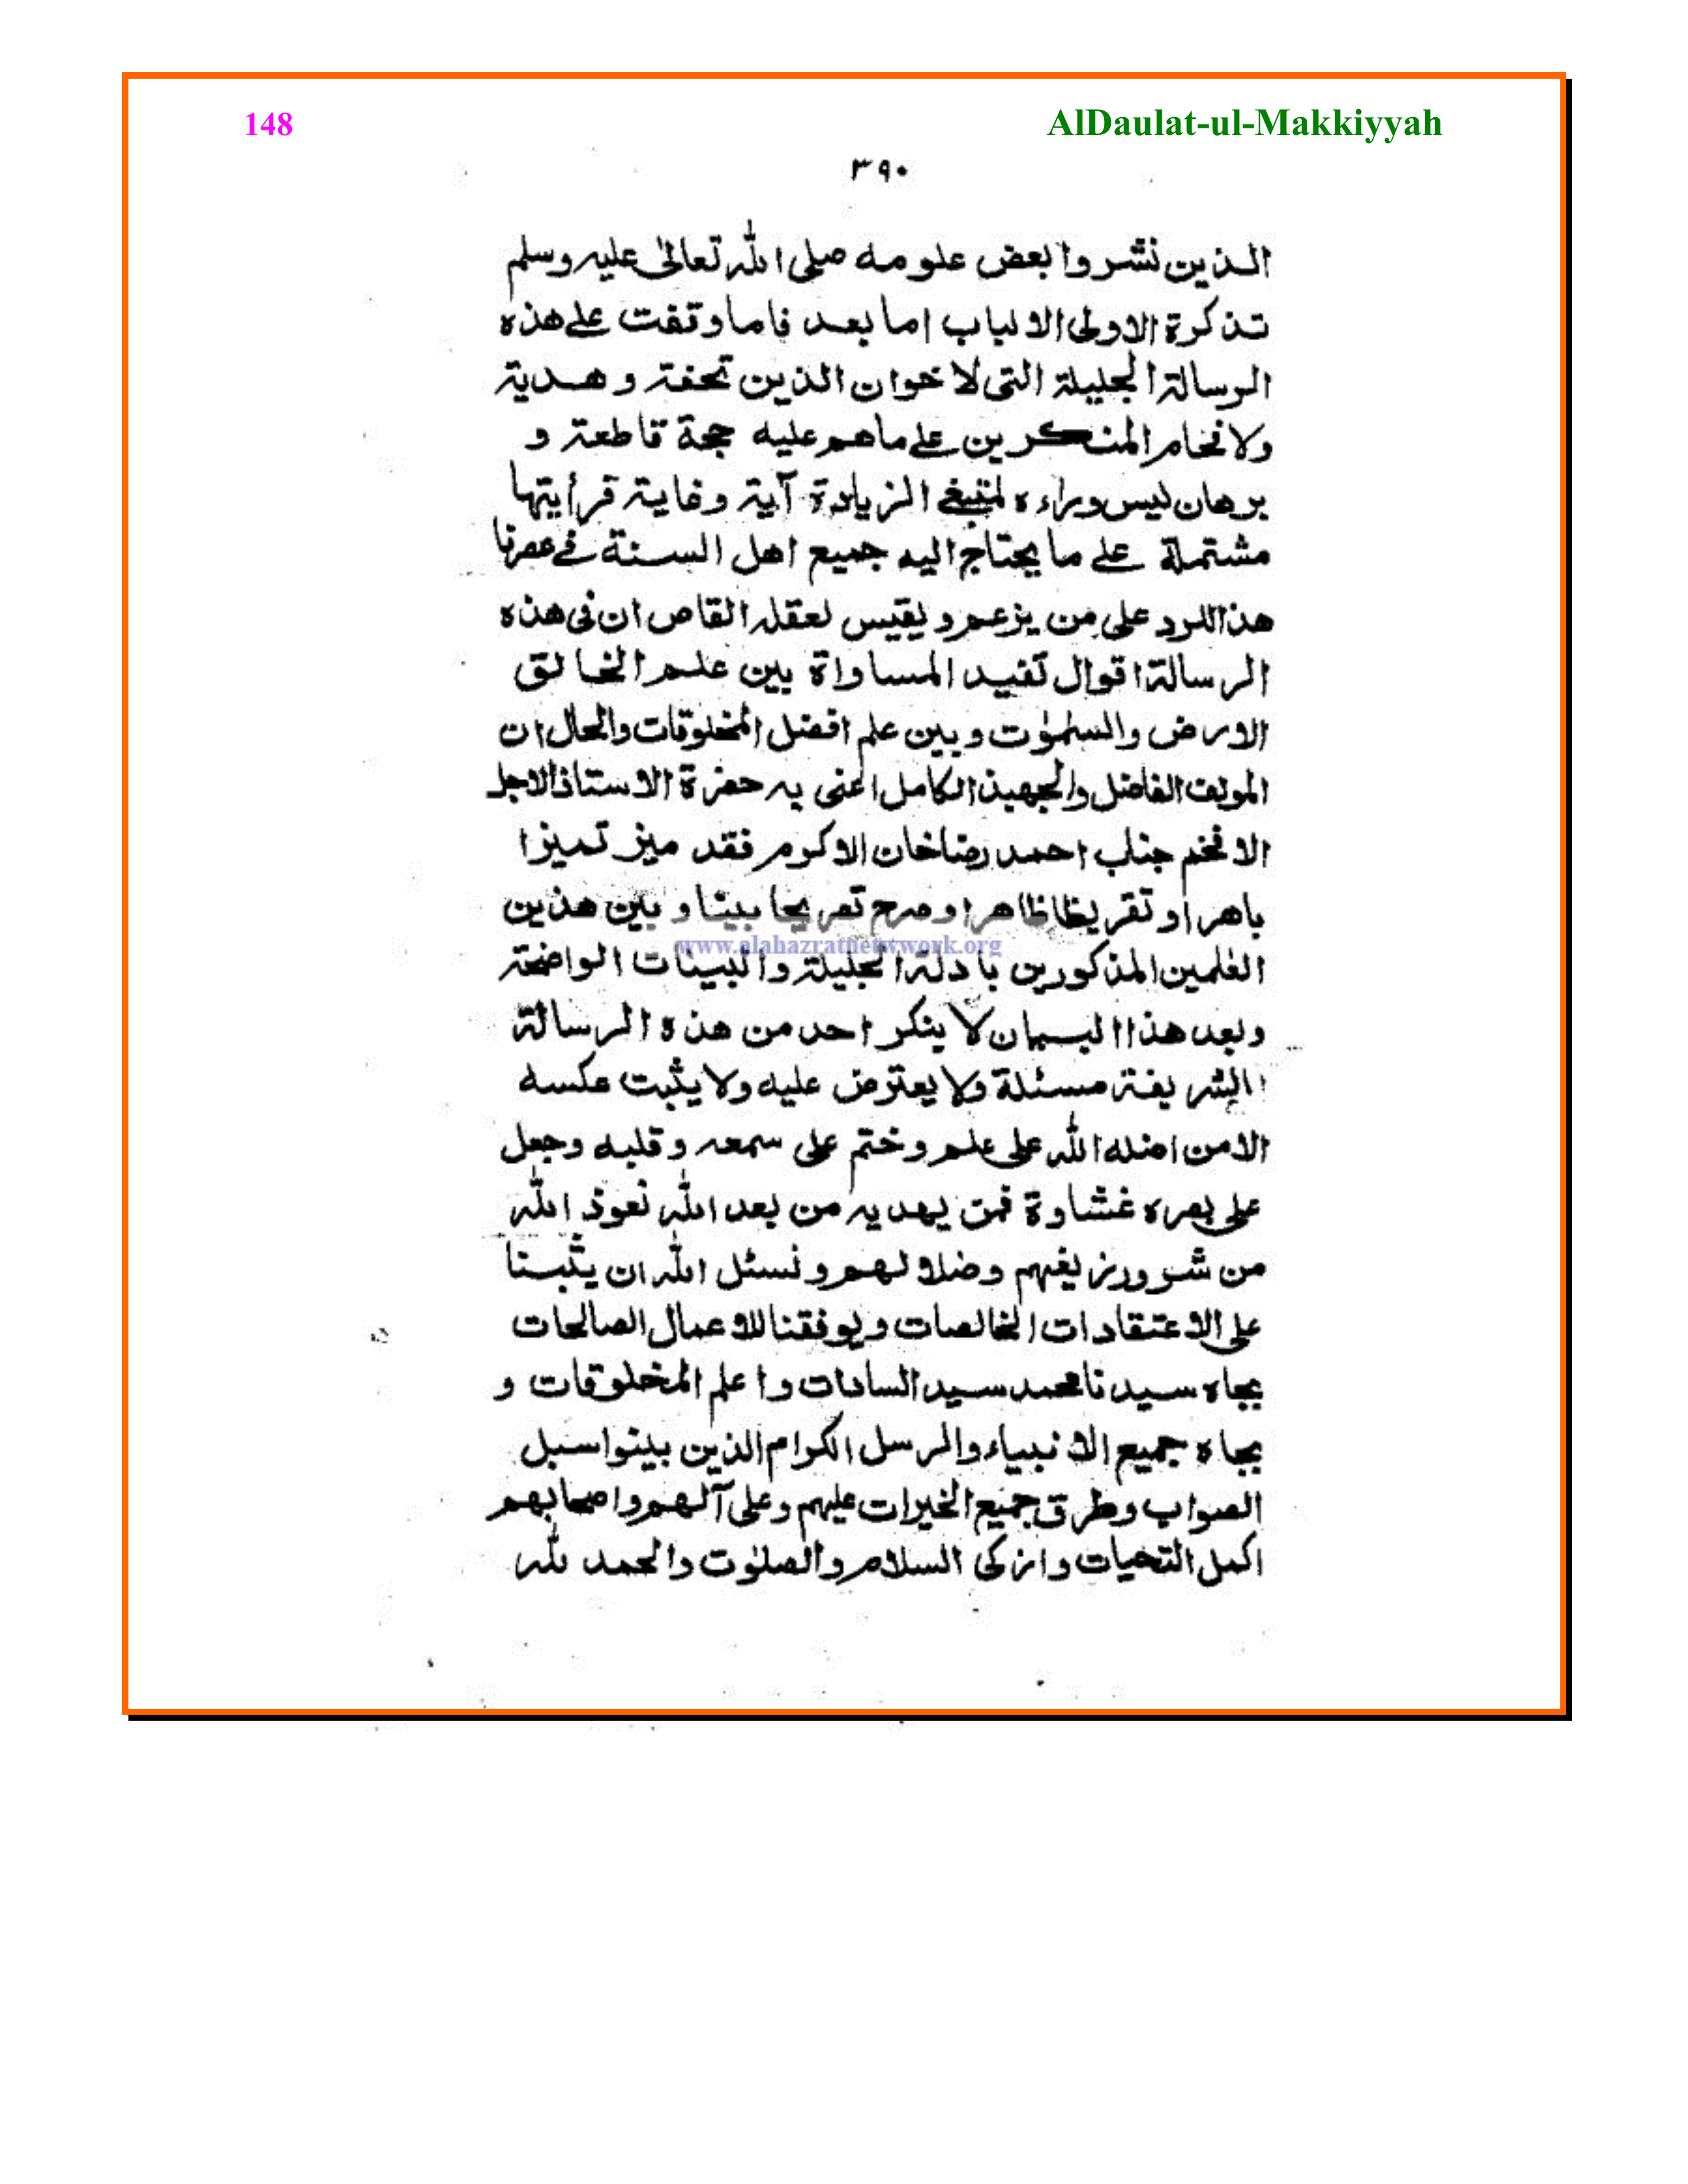 148
AlDaulat-ul-Makkiyyah
٣٩٠
الذين نشروا بعض علومه صلى الله تعالىٰ عليه وسلم
تذكرة الاولى الالباب اما بعد فاما وقفت على هذه
الرسالة الجليلة التى لاخوان الذين تحفة وهدية
ولافحام المنكرين على ماهم عليه حجة قاطعة و
برهان ليس وراءه لمنبغى الزيادة آية وغاية قرأيتها
مشتملة على ما يحتاج اليه جميع اهل السنة فى عصرنا
هذا الرد على من يزعم و يقيس لعقله القاص ان فى هذه
الرسالة اقوال تفيد المساواة بين علم الخالق
الارض والسمٰوٰت وبين علم افضل المخلوقات والحال ان
المولف الفاضل والجهبذ الكامل اعنى به حضرة الاستاذ الاجل
الافخم جناب احمد رضاخان الاكرم فقد ميز تميزا
باهرا و تقريظا ظاهرا و صرح تصريحا بينا و بين هذين
العلمين المذكورين بادلة الجليلة والبينات الواضحة
وبعد هذا البيان لا ينكر احد من هذه الرسالة
الشريفة مسئلة ولا يعترض عليه ولا يثبت عكسه
الا من اضله الله على علم وختم على سمعه وقلبه وجعل
على بصره غشاوة فمن يهديه من بعد الله نعوذ الله
من شرور زيغهم وضلالهم و نسئل الله ان يثبتنا
على الاعتقادات الخالصات و يوفقنا للاعمال الصالحات
بجاه سيدنا محمد سيد السادات واعلم المخلوقات و
بجاه جميع الانبياء والرسل الكرام الذين بينوا سبل
الصواب وطرق جميع الخيرات عليهم وعلى آلهم واصحابهم
اكمل التحيات وازكى السلام والصلوٰت والحمد لله
www.alahazratnetwork.org